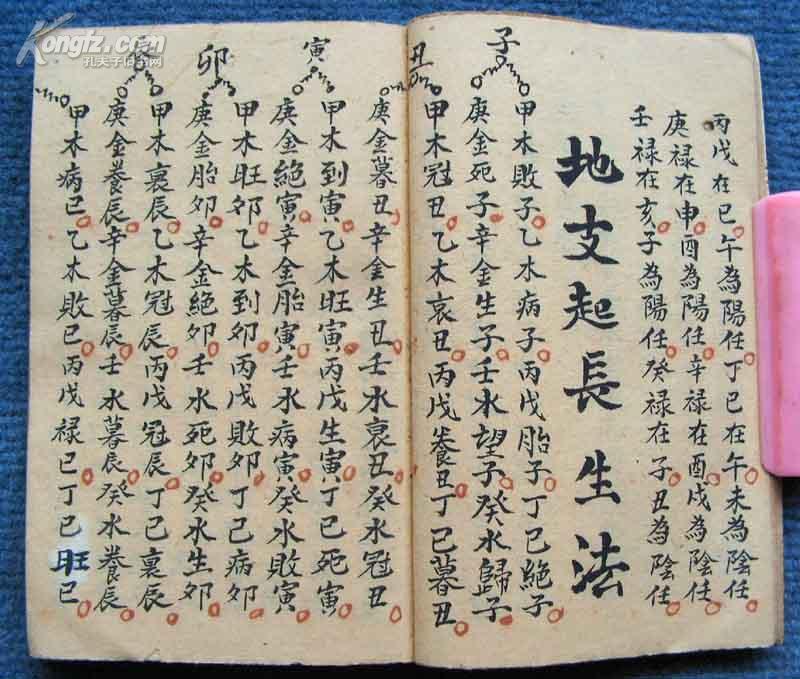 丙戊在巳午為陽任丁己在午未為陰任
庚禄在申酉為陽任辛禄在酉戌為陰任
壬禄在亥子為陽任癸禄在子丑為陰任
地支起長生法
子
甲木敗子乙木病子丙戊胎子丁己絕子
庚金死子辛金生子壬水望子癸水歸子
丑
甲木冠丑乙木衰丑丙戊養丑丁己暮丑
庚金暮丑辛金生丑壬水衰丑癸水冠丑
寅
甲木到寅乙木旺寅丙戊生寅丁己死寅
庚金絕寅辛金胎寅壬水病寅癸水敗寅
卯
甲木旺卯乙木到卯丙戊敗卯丁己病卯
庚金胎卯辛金絕卯壬水死卯癸水生卯
甲木裏辰乙木冠辰丙戊冠辰丁己裏辰
庚金養辰辛金暮辰壬水暮辰癸水養辰
甲木病巳乙木敗巳丙戊禄巳丁己旺巳
Kongfz.com
孔夫子旧书网